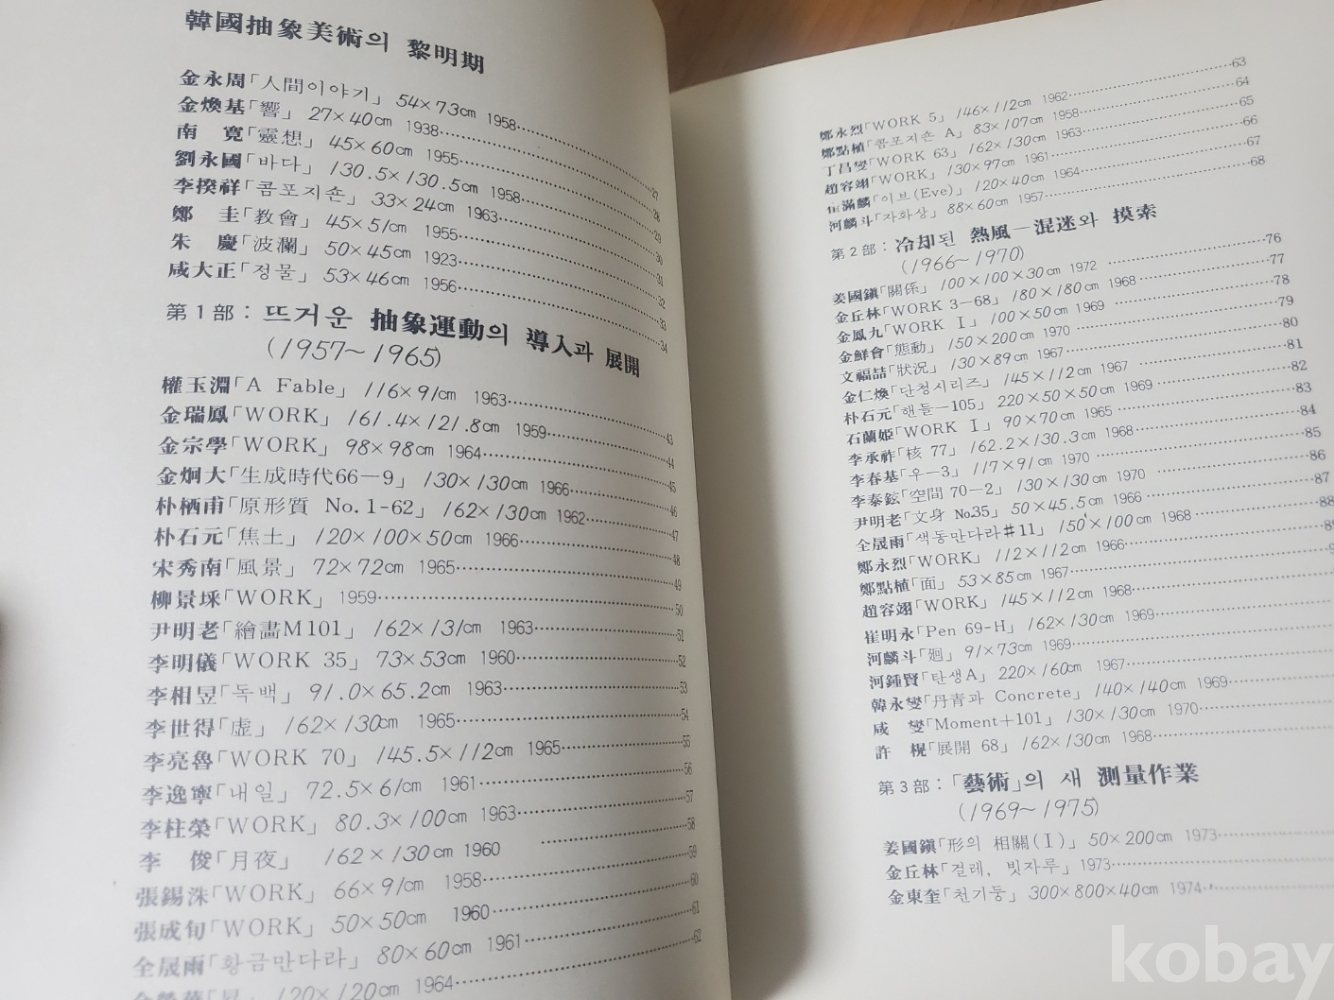 韓國抽象美術의 黎明期
金永周「人間이야기」 54×73cm 1958 27
金煥基「響」 27×40cm 1938 28
南 寬「靈想」 45×60cm 1955 29
劉永國「바다」 130.5×130.5cm 1958 30
李揆祥「콤포지숀」 33×24cm 1963 31
鄭 圭「敎會」 45×51cm 1955 32
朱 慶「波瀾」 50×45cm 1923 33
咸大正「정물」 53×46cm 1956 34
第1部: 뜨거운 抽象運動의 導入과 展開
(1957~1965)
權玉淵「A Fable」 116×91cm 1963 43
金瑞鳳「WORK」 161.4×121.8cm 1959 44
金宗學「WORK」 98×98cm 1964 45
金炯大「生成時代66-9」 130×130cm 1966 46
朴栖甫「原形質 No.1-62」 162×130cm 1962 47
朴石元「焦土」 120×100×50cm 1966 48
宋秀南「風景」 72×72cm 1965 49
柳景埰「WORK」 1959 50
尹明老「繪畵M101」 162×131cm 1963 51
李明儀「WORK 35」 73×53cm 1960 52
李相昱「독백」 91.0×65.2cm 1963 53
李世得「虛」 162×130cm 1965 54
李亮魯「WORK 70」 145.5×112cm 1965 55
李逸寧「내일」 72.5×61cm 1961 56
李柱榮「WORK」 80.3×100cm 1963 57
李 俊「月夜」 162×130cm 1960 58
張錫洙「WORK」 66×91cm 1958 59
張成旬「WORK」 50×50cm 1960 60
全晟雨「황금만다라」 80×60cm 1961 61
120×120cm 1964 62
鄭永烈「WORK 5」 146×112cm 1962 63
鄭點植「콤포지숀 A」 83×107cm 1958 64
丁昌燮「WORK 63」 162×130cm 1963 65
趙容翊「WORK」 130×97cm 1961 66
崔滿麟「이브(Eve)」 120×40cm 1964 67
河麟斗「자화상」 88×60cm 1957 68
第2部: 冷却된 熱風-混迷와 摸索
(1966~1970)
姜國鎭「關係」 100×100×30cm 1972 76
金丘林「WORK 3-68」 180×180cm 1968 77
金鳳九「WORK I」 100×50cm 1969 78
金鮮會「態動」 150×200cm 1970 79
文福喆「狀況」 130×89cm 1967 80
金仁煥「단청시리즈」 145×112cm 1967 81
朴石元「핸들-105」 220×50×50cm 1969 82
石蘭姬「WORK I」 90×70cm 1965 83
李承祚「核 77」 162.2×130.3cm 1968 84
李春基「우-3」 117×91cm 1970 85
李泰鉉「空間 70-2」 130×130cm 1970 86
尹明老「文身 No.35」 50×45.5cm 1966 87
全晟雨「색동만다라#11」 150×100cm 1968 88
鄭永烈「WORK」 112×112cm 1966
鄭點植「面」 53×85cm 1967
趙容翊「WORK」 145×112cm 1968
崔明永「Pen 69-H」 162×130cm 1969
河麟斗「廻」 91×73cm 1969
河鍾賢「탄생A」 220×160cm 1967
韓永燮「丹靑과 Concrete」 140×140cm 1969
咸 燮「Moment+101」 130×130cm 1970
許 榥「展開 68」 162×130cm 1968
第3部: 「藝術」의 새 測量作業
(1969~1975)
姜國鎭「形의 相關(I)」 50×200cm 1973
金丘林「걸레, 빗자루」 1973
金東奎「천기둥」 300×800×40cm 1974
kobay